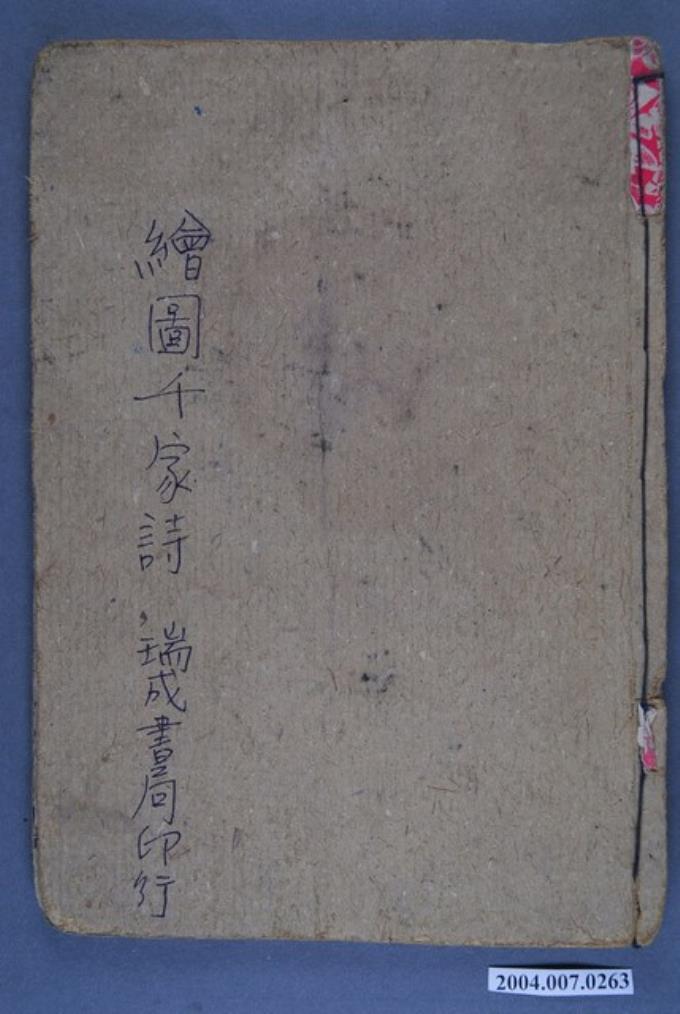 繪圖千家詩
瑞成書局印行
2004.007.0263